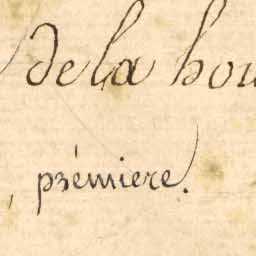 de la hou
, prémiere.